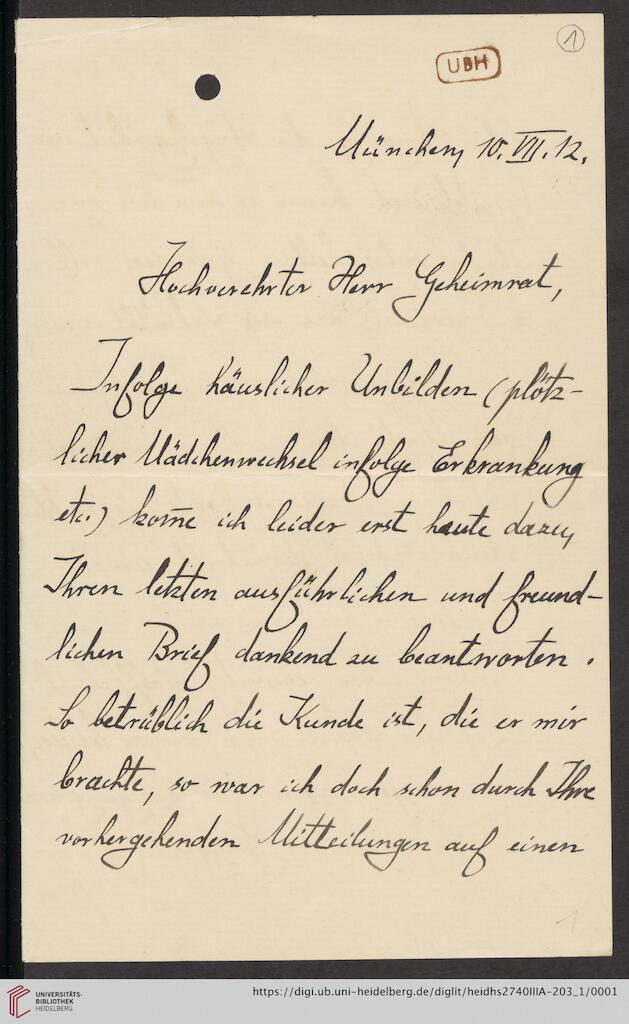 1
UBH
München, 10. VII. 12.
Hochverehrter Herr Geheimrat,
Infolge häuslicher Unbilden (plötz-
licher Mädchenwechsel infolge Erkrankung
etc.) kom̅e ich leider erst heute dazu,
Ihren letzten ausführlichen und freund-
lichen Brief dankend zu beantworten.
So betrüblich die Kunde ist, die er mir
brachte, so war ich doch schon durch Ihre
vorhergehenden Mitteilungen auf einen
1
UNIVERSITÄTS-
BIBLIOTHEK
HEIDELBERG
https://digi.ub.uni-heidelberg.de/diglit/heidhs2740IIIA-203_1/0001